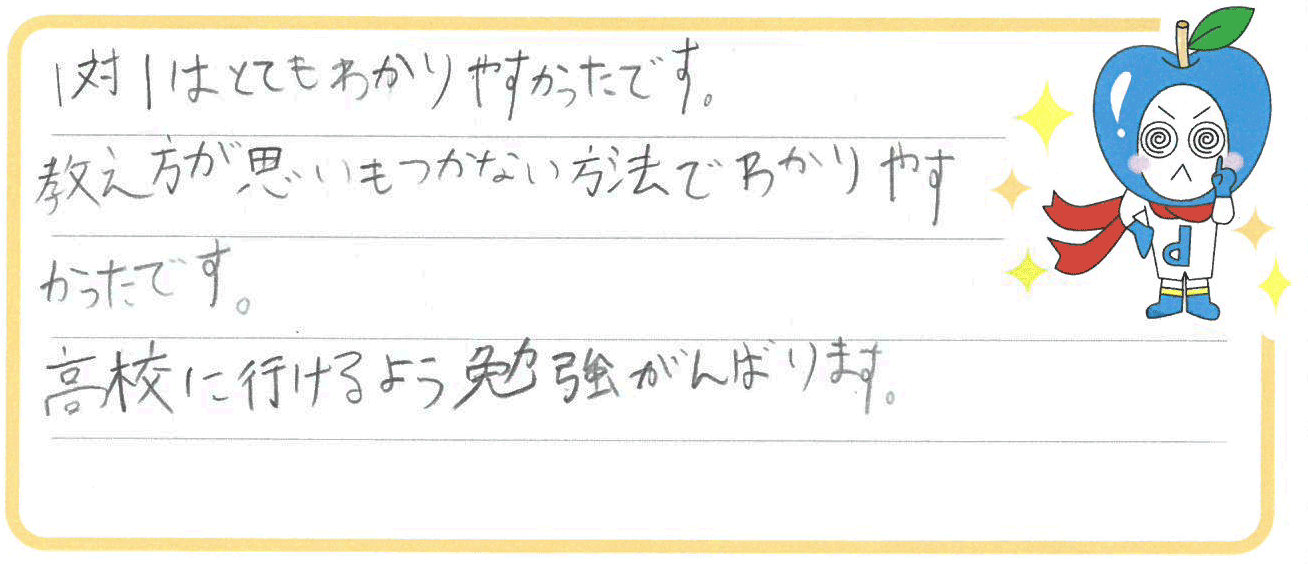 1対1はとてもわかりやすかったです。
教え方が思いもつかない方法でわかりやす
かったです。
高校に行けるよう勉強がんばります。
d